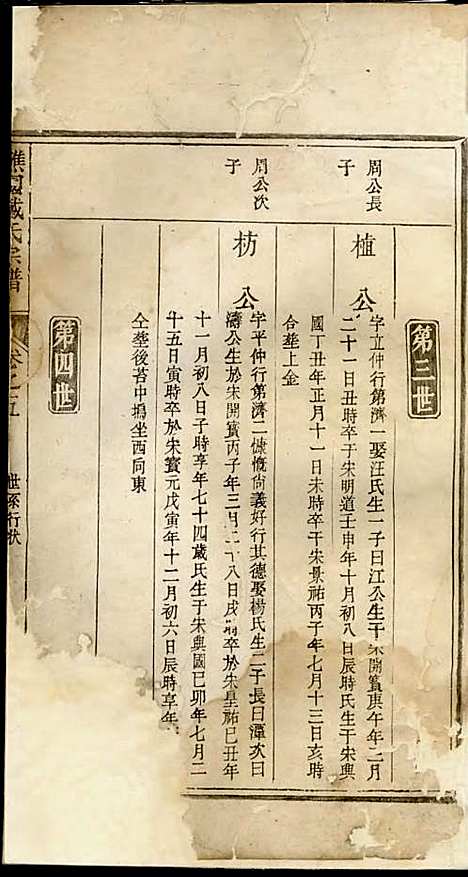 第三世
周公長
子
植公
字立仲行第濟一娶汪氏生一子曰江公生于宋開寶庚午年二月
二十一日丑時卒于宋明道壬申年十月初八日辰時氏生于宋興
國丁丑年正月十一日未時卒于宋景祐丙子年七月十三日亥時
合塟上金
周公次
子
枋公
字平仲行第濟二慷慨尙義好行其德娶楊氏生二子長曰潭次曰
濤公生於宋開寶丙子年三月二十八日戌時卒於宋皇祐已丑年
十一月初八日子時享年七十四歲氏生于宋興國已卯年七月二
十五日寅時卒於宋寶元戊寅年十二月初六日辰時享年
仝塟後苔中塢坐西向東
第四世
譙國戴氏宗譜
卷之五
世系行狀